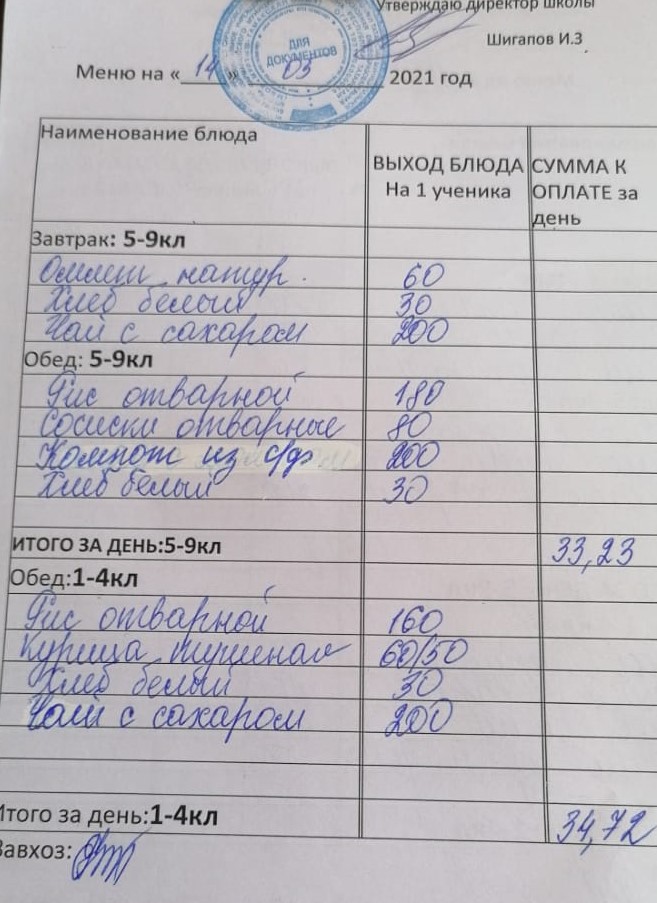 Утверждаю директор школы
Шигапов И.З
ДЛЯ ДОКУМЕНТОВ
Меню на «14» 03 2021 год
Наименование блюда ВЫХОД БЛЮДА На 1 ученика СУММА К ОПЛАТЕ за день
Завтрак: 5-9кл
Омлет натур. 60
Хлеб белый 30
Чай с сахаром 200
Обед: 5-9кл
Рис отварной 180
Сосиски отварные 80
Компот из с/ф 200
Хлеб белый 30
ИТОГО ЗА ДЕНЬ:5-9кл 33,23
Обед:1-4кл
Рис отварной 160
Курица тушеная 60/50
Хлеб белый 30
Чай с сахаром 200
Итого за день:1-4кл 34,72
Завхоз: